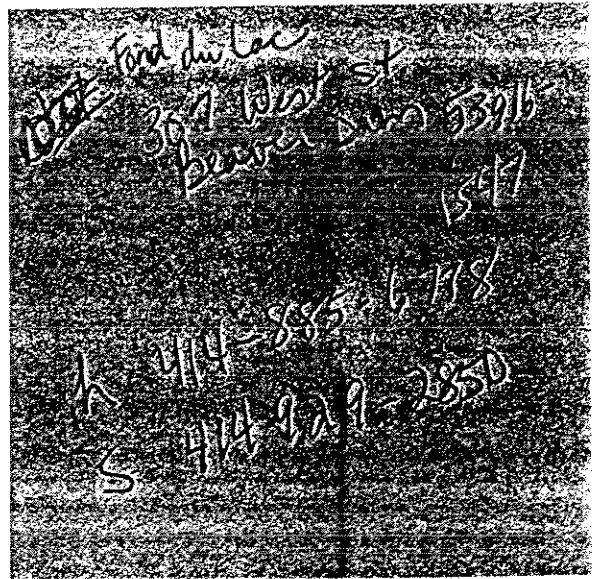 Fond du Lac
307 West St
Beaver Dam 53916-
1549
h 414-885-6138
S 414-929-2850